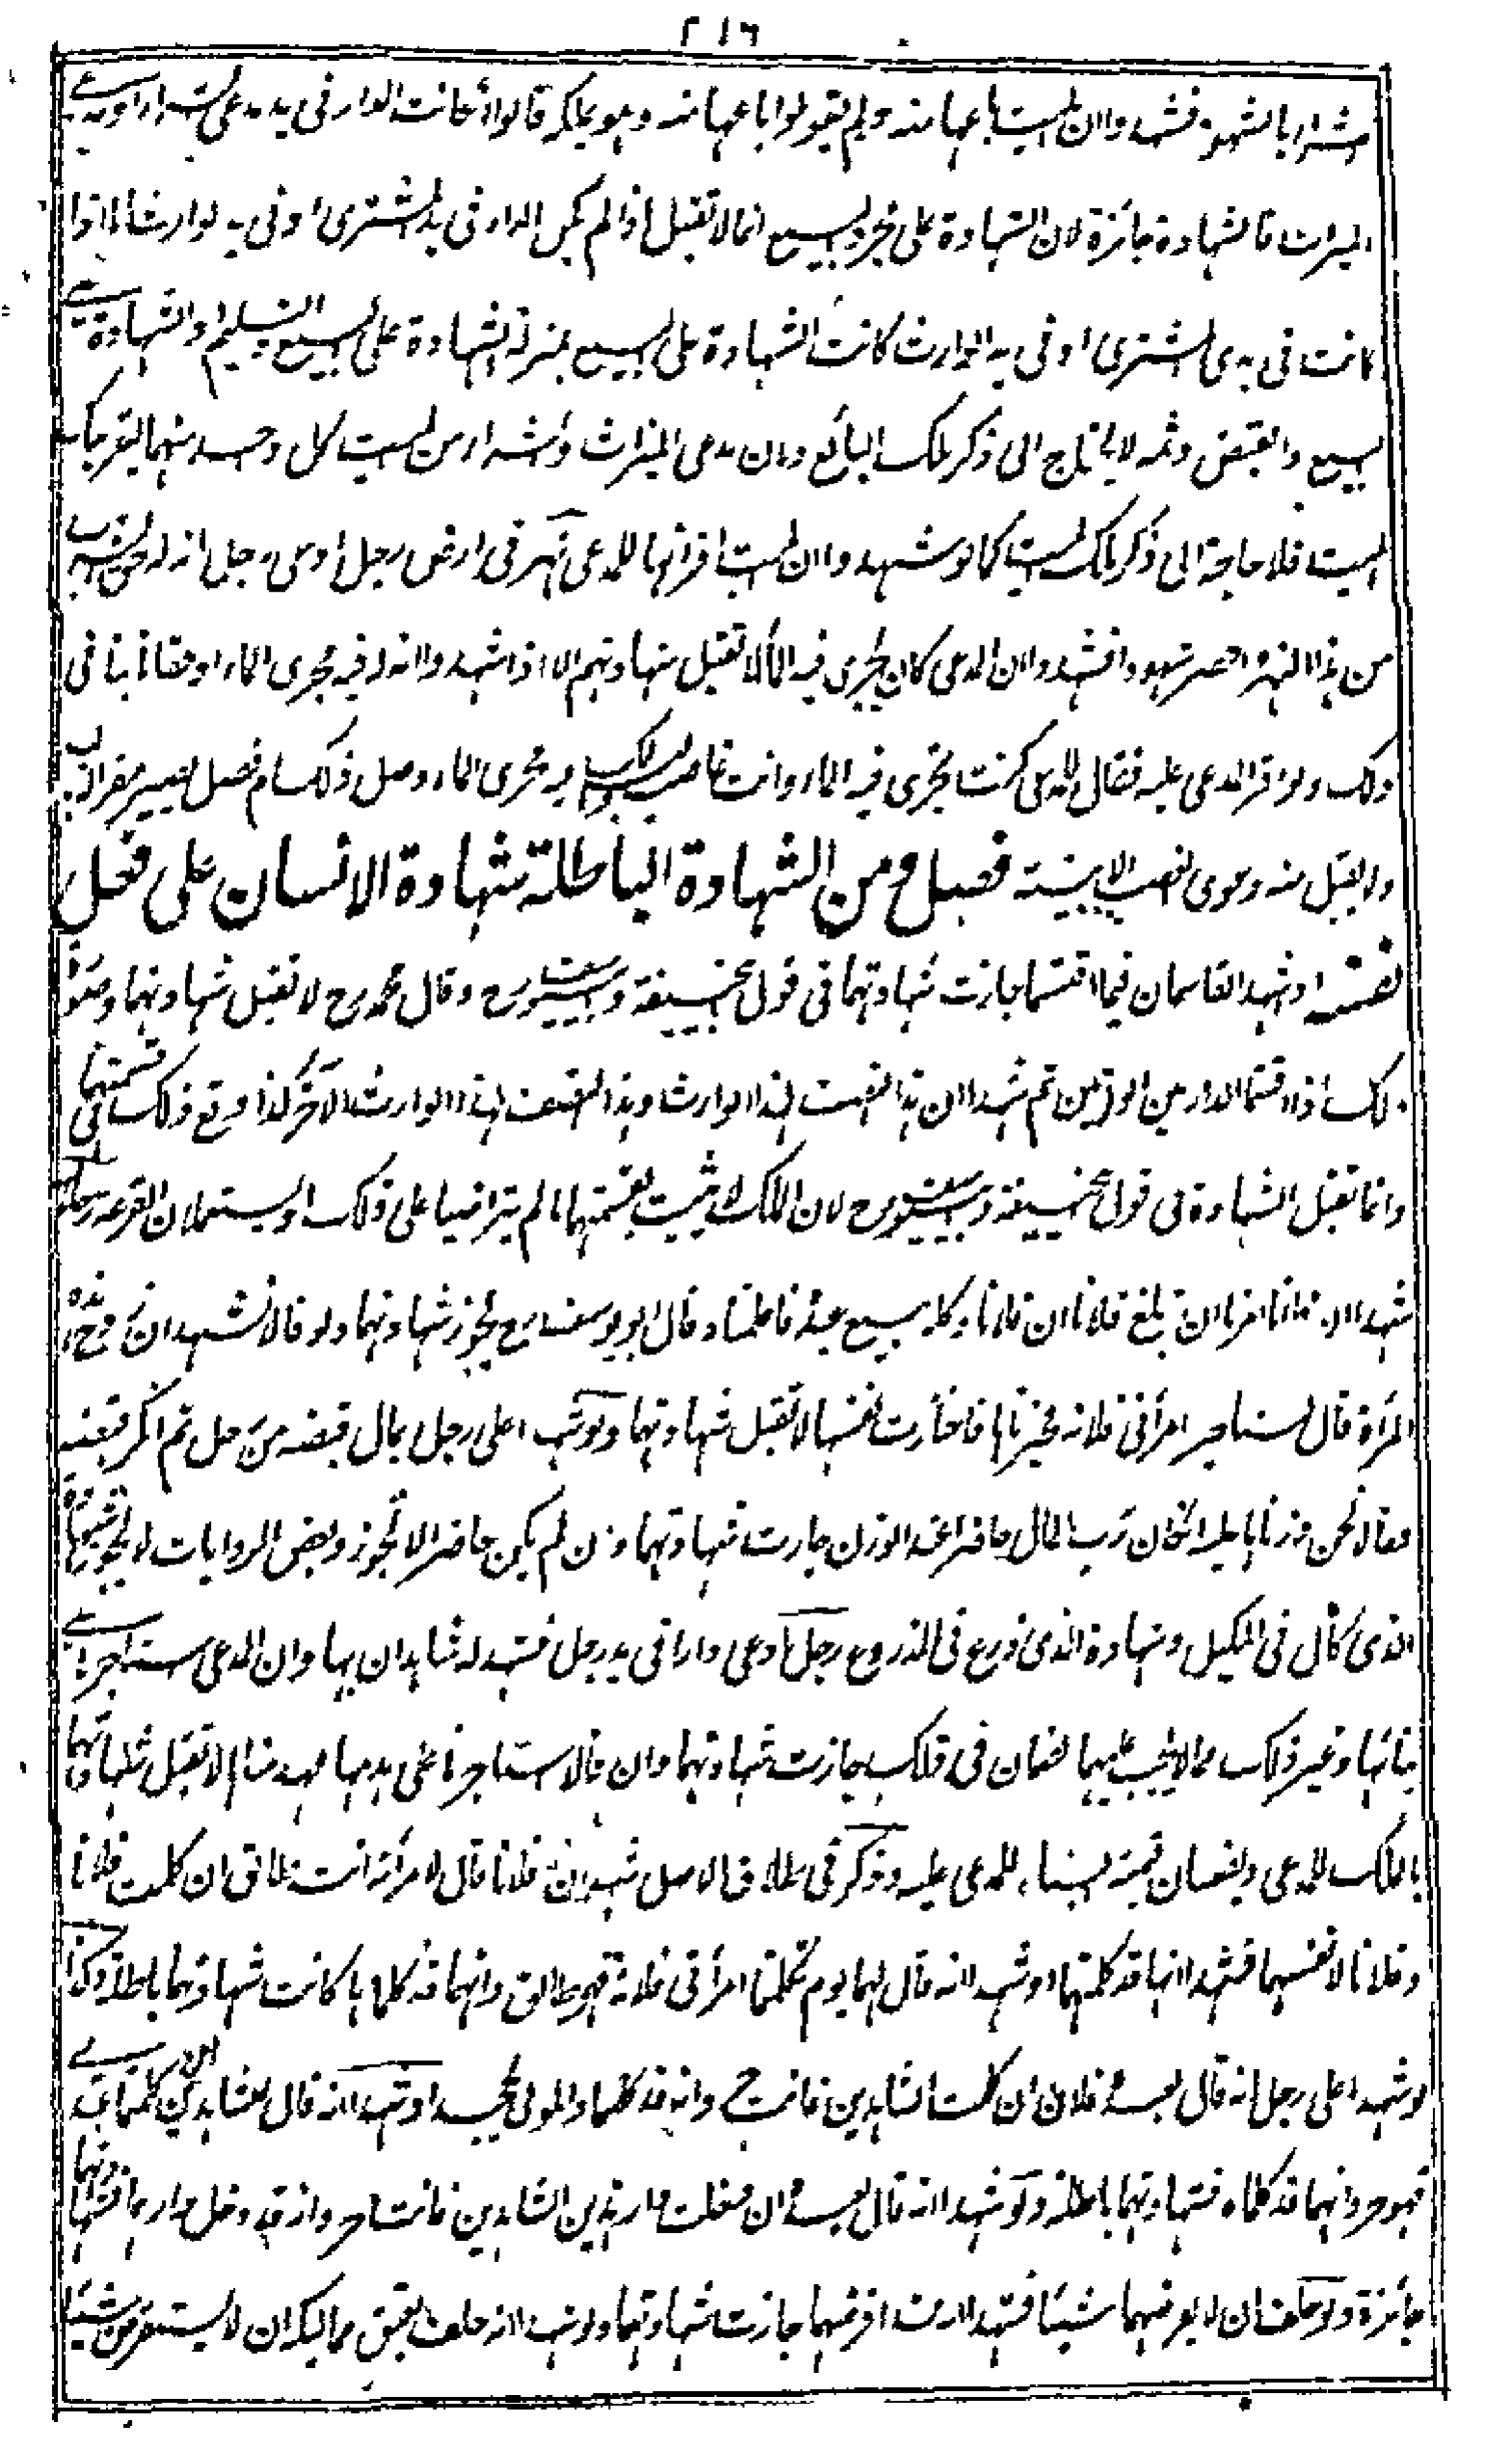 ٢١٦
بالشهود فشهدوا ان الميت باعها منه ولم يقولوا باعها منه وهو يملكها قالوا ان كانت الدار فى يد مدعى الشراء او مدعى
الميراث فالشهادة جائزة لان الشهادة على مجرد البيع انما لا تقبل اذا لم يكن الدار فى يد المشترى او فى يد الوارث اما اذا
كانت فى يد المشترى او فى يد الوارث كانت الشهادة على البيع بمنزلة الشهادة على البيع والتسليم او الشهادة على
البيع والقبض وثمه لا يحتاج الى ذكر ملك البائع ولان مدعى الميراث والشراء من الميت كل واحد منهما يقر بملك
الميت فلا حاجة الى ذكر ملك الميت كما لو شهدوا ان الميت اقر انها للمدعى نهر فى ارض رجل ادعى رجل انه له حق الشرب
من هذا النهر واحضر شهودا فشهدوا ان المدعى كان يجرى فيه الماء لا تقبل شهادتهم الا اذا شهدوا انه له فيه مجرى الماء او حقا ثابتا فى
ذلك ولو اقر المدعى عليه فقال للمدعى كنت تجرى فيه الماء وانت غاصب مجرى الماء وصل ذلك ام فصل يصير مقرا
ولا يقبل منه دعوى الغصب الا ببينة فصل ومن الشهادة الباطلة شهادة الانسان على فعل
نفسه اذا شهد القاسمان فيما اقتسما جازت شهادتهما فى قول ابى حنيفة وابى يوسف رح وقال محمد رح لا تقبل شهادتهما وصورة
ذلك اذا اقتسما الدار بين الوارثين ثم شهدا ان هذا النصف لهذا الوارث وهذا النصف لهذا الوارث الآخر كذا وقع ذلك فى قسمتهما
وانما تقبل الشهادة فى قول ابى حنيفة وابى يوسف رح لان الملك لا يثبت بقسمتهما ما لم يتراضيا على ذلك او يستعملان القرعة رجلان
شهدا ان فلانا امرنا ان نبلغ فلانا ان فلانا وكله ببيع عبده فاعلمناه قال ابو يوسف رح يجوز شهادتهما ولو قالا نشهد ان زوج هذه
المرأة قال لنا خيرا امرأتى فلانة فخيرناها فاختارت نفسها لا تقبل شهادتهما ولو شهدا على رجل بمال قبضه من رجل ثم انكر قبضه
فقالا نحن وزناها عليه ان كان رب المال حاضرا عند الوزن جازت شهادتهما وان لم يكن حاضرا لا تجوز وبعض الروايات لا يجوز شهادة
الذى كال فى المكيل وشهادة الذى ذرع فى المذروع رجل ادعى دارا فى يد رجل فشهد له شاهدان بها وان المدعى استأجرنا على
بنائها وغير ذلك مما لا يجب عليهما الضمان فى ذلك جازت شهادتهما وان قالا استأجرنا على هدمها فهدمناها لا تقبل شهادتهما
بالملك للمدعى ويضمنان قيمة البناء للمدعى عليه وذكر فى طلاق الاصل شهدا ان فلانا قال لامرأته انت طالق ان كلمت فلانا
وفلانا لانفسهما فشهدا انها قد كلمتهما او شهدا انه قال لهما يوم تكلما امرأتى فلانة فهى طالق وانهما قد كلماها كانت شهادتهما باطلة وكذا
لو شهدا على رجل انه قال لعبده فلان ان كلمت الشاهدين فانت حر وانه قد كلمهما والمولى يجحد او شهدا انه قال للشاهدين ان كلمتما عبدى
فهو حر وانهما قد كلماه فشهادتهما باطلة ولو شهدا انه قال لعبده ان دخلت دار هذين الشاهدين فانت حر وانه قد دخل دارهما فشهادتهما
جائزة ولو حلف ان لا يقرضهما شيئا فشهدا انه اقرضهما جازت شهادتهما ولو شهدا انه حلف بعتق مماليكه ان لا يستقرض شيئا